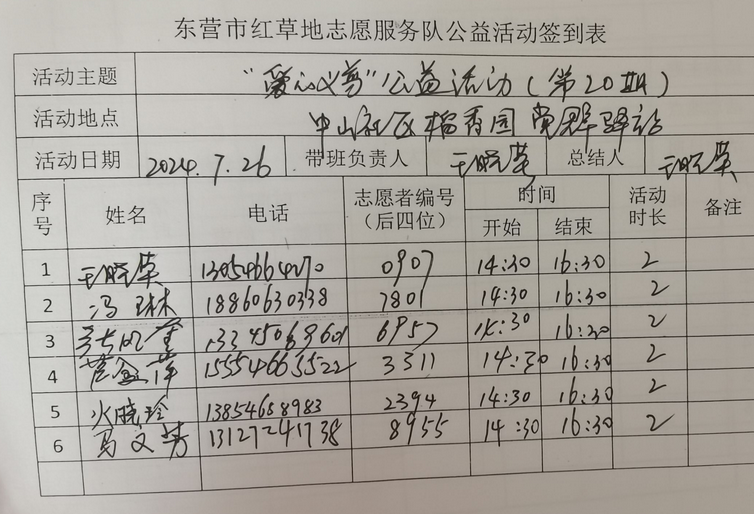 东营市红草地志愿服务队公益活动签到表
活动主题 "爱心义剪"公益活动(第20期)
活动地点 中山社区稻香园党群驿站
活动日期 2024.7.26 带班负责人 王晓英 总结人 王晓英
序号 姓名 电话 志愿者编号(后四位) 时间 开始 结束 活动时长 备注
1 王晓英 13054664270 0907 14:30 16:30 2
2 冯琳 18860630338 7801 14:30 16:30 2
3 6957 14:30 16:30 2
4 15554665522 3311 14:30 16:30 2
5 火晓玲 13854688983 2394 14:30 16:30 2
6 马文芳 13127241738 8955 14:30 16:30 2